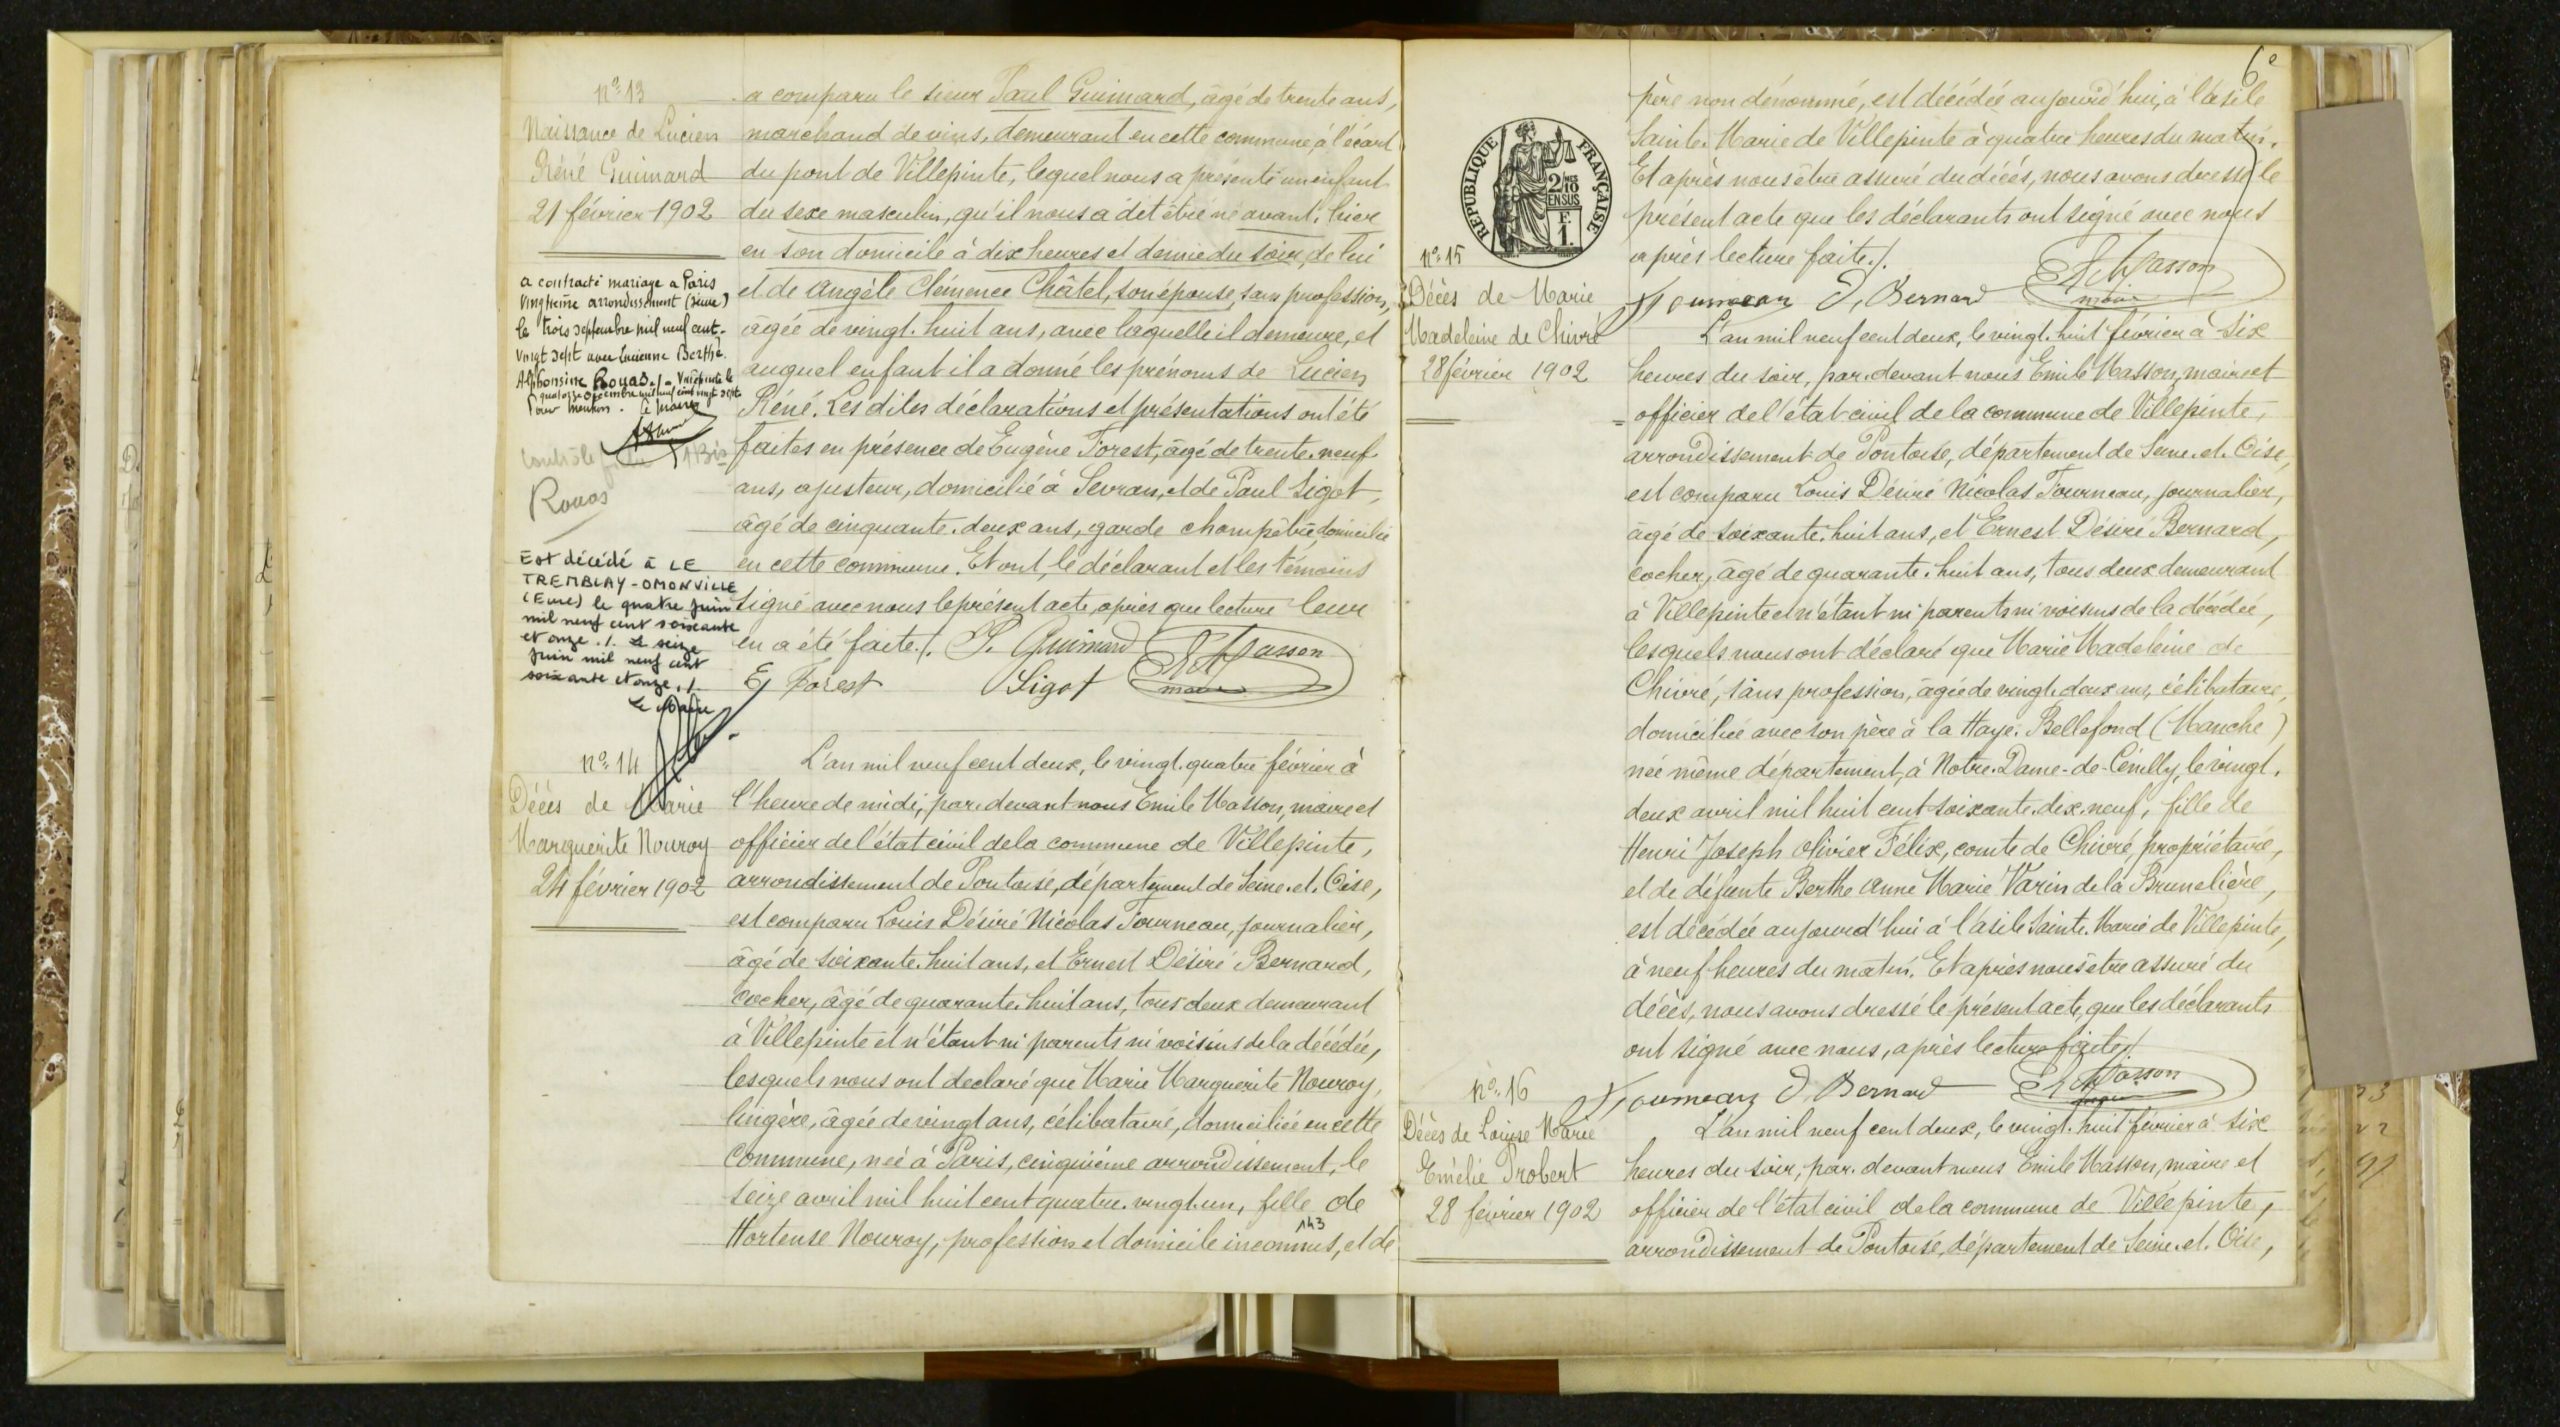 nº 13
Naissance de Lucien
Réné Guimard
21 février 1902
a contracté mariage a Paris
vingtième arrondissement (Seine)
le trois septembre mil neuf cent
vingt sept avec Lucienne Berthe
Alphonsine Rouas ./. Villepinte le
quatorze décembre mil neuf cent vingt sept
Pour mention. Le Maire
Contrôle
Rouas
Est décédé à LE
TREMBLAY-OMONVILLE
(Eure) le quatre juin
mil neuf cent soixante
et onze ./. Le seize
juin mil neuf cent
soixante et onze ./.
Le Maire
a comparu le sieur Paul Guimard, âgé de trente ans,
marchand de vins, demeurant en cette commune, à l'écart
du pont de Villepinte, lequel nous a présenté un enfant
du sexe masculin, qu'il nous a dit être né avant-hier
en son domicile à dix heures et demie du soir, de lui
et de Angèle Clémence Châtel, son épouse, sans profession,
âgée de vingt-huit ans, avec laquelle il demeure, et
auquel enfant il a donné les prénoms de Lucien
Réné. Les dites déclarations et présentations ont été
faites en présence de Eugène Forest, âgé de trente-neuf
ans, ajusteur, domicilié à Sevran, et de Paul Ligot,
âgé de cinquante-deux ans, garde champêtre domicilié
en cette commune. Et ont, le déclarant et les témoins
signé avec nous le présent acte, après que lecture leur
en a été faite ./. P. Guimard EMasson
E Forest Ligot maire
nº 14
Décès de Marie
Marguerite Nouroy
24 février 1902
L'an mil neuf cent deux, le vingt-quatre février à
l'heure de midi, par-devant nous Emile Masson, maire et
officier de l'état civil de la commune de Villepinte,
arrondissement de Pontoise, département de Seine-et-Oise,
est comparu Louis Désiré Nicolas Tourneau, journalier,
âgé de soixante-huit ans, et Ernest Désiré Bernard,
cocher, âgé de quarante-huit ans, tous deux demeurant
à Villepinte et n'étant ni parents ni voisins de la décédée,
lesquels nous ont declaré que Marie Marguerite Nouroy,
lingère, âgée de vingt ans, célibataire, domiciliée en cette
commune, née à Paris, cinquième arrondissement, le
seize avril mil huit cent quatre-vingt-un, fille de
Hortense Nouroy, profession et domicile inconnus, et de
143
6e
REPUBLIQUE FRANÇAISE
2/10 EN SUS
F. 1.
père non dénommé, est décédée aujourd'hui, à l'asile
Sainte-Marie de Villepinte à quatre heures du matin.
Et après nous être assuré du décès, nous avons dressé le
présent acte que les déclarants ont signé avec nous
après lecture faite ./.
Tourneau D. Bernard EMasson
maire
nº 15
Décès de Marie
Madeleine de Chivré
28 février 1902
L'an mil neuf cent deux, le vingt-huit février à six
heures du soir, par-devant nous Emile Masson, maire et
officier de l'état civil de la commune de Villepinte,
arrondissement de Pontoise, département de Seine-et-Oise,
est comparu Louis Désiré Nicolas Tourneau, journalier,
âgé de soixante-huit ans, et Ernest Désiré Bernard,
cocher, âgé de quarante-huit ans, tous deux demeurant
à Villepinte et n'étant ni parents ni voisins de la décédée,
lesquels nous ont déclaré que Marie Madeleine de
Chivré, sans profession, âgée de vingt-deux ans, célibataire,
domiciliée avec son père à la Haye-Bellefond (Manche)
née même département, à Notre-Dame-de-Cénilly, le vingt-
deux avril mil huit cent soixante-dix-neuf, fille de
Henri Joseph Olivier Félix, comte de Chivré, propriétaire,
et de défunte Berthe Anne Marie Varin de la Brunelière,
est décédée aujourd'hui à l'asile Sainte-Marie de Villepinte,
à neuf heures du matin. Et après nous être assuré du
décès, nous avons dressé le présent acte, que les déclarants
ont signé avec nous, après lecture faite ./.
Tourneau D. Bernard EMasson
nº 16
Décès de Louise Marie
Emélie Probert
28 février 1902
L'an mil neuf cent deux, le vingt-huit février à six
heures du soir, par-devant nous Emile Masson, maire et
officier de l'état civil de la commune de Villepinte,
arrondissement de Pontoise, département de Seine-et-Oise,